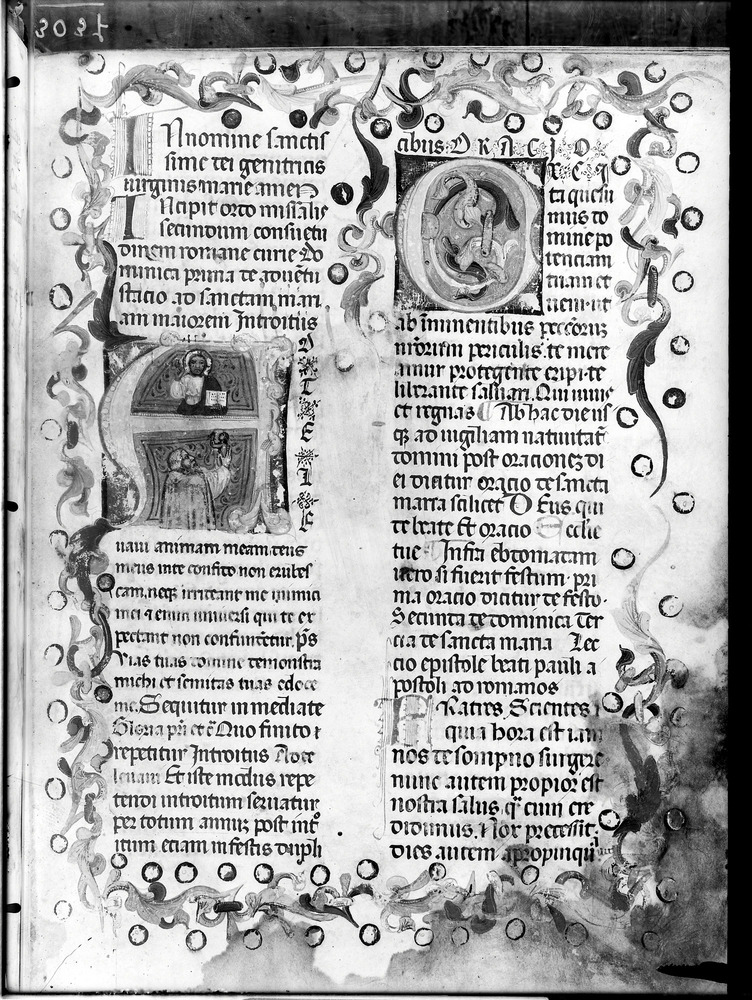 In nomine sanctis
sime dei genitricis
uirginis marie amen
Incipit ordo missalis
secundum consuetu
dinem romane curie Do
minica prima de aduētu
stacio ad sanctam mari
am maiorem Introitus
AD
TE
LE
uaui animam meam deus
meus in te confido non erubes
cam, neqȝ irrideant me inimici
mei ⁊ enim uniuersi qui te ex
pectant non confundētur. p̄s
Uias tuas domine demonstra
michi et semitas tuas edoce
me. Sequitur inmediate
Gloria pr̄i et c̄ Quo finito ⁊
repetitur Introitus Ad te
leuaui Et iste modus repe
tendi introitum seruatur
per totum annuȝ post int°
itum etiam in festis dupli
cibus ORACIO
EXCI
ta quesu
mus do
mine po
tenciam
tuam et
ueni ut
ab īminentibus peccatoruȝ
nr̄orum periculis te mere
amur protegente eripi te
liberante saluari. Qui uiuis
et regnas Ab hac die us
qȝ ad uigiliam natiuitat̄
domini post oracioneȝ di
ei dicitur oracio de sancta
maria scilicet Deus qui
de beate Et oracio Ecclie
tue Infra ebdomadam
uero si fuerit festum pri
ma oracio dicitur de festo.
Secunda de dominica Ter
cia de sancta maria Lec
cio epistole beati pauli a
postoli ad romanos
Fratres Scientes
quia hora est iam
nos de sompno surgere
nunc autem propior est
nostra salus, qȝ cum cre
didimus. Nox precessit.
dies autem apropinqu
3037